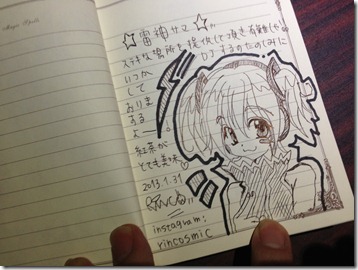 ☆雷神サマ☆
ステキな場所を提供して頂き有難しゃす!
DJするのたのしみに
いつか
して
おりま
する
よー
紅茶が
とても美味♡
2013.1.31
instagram:
rincosmic